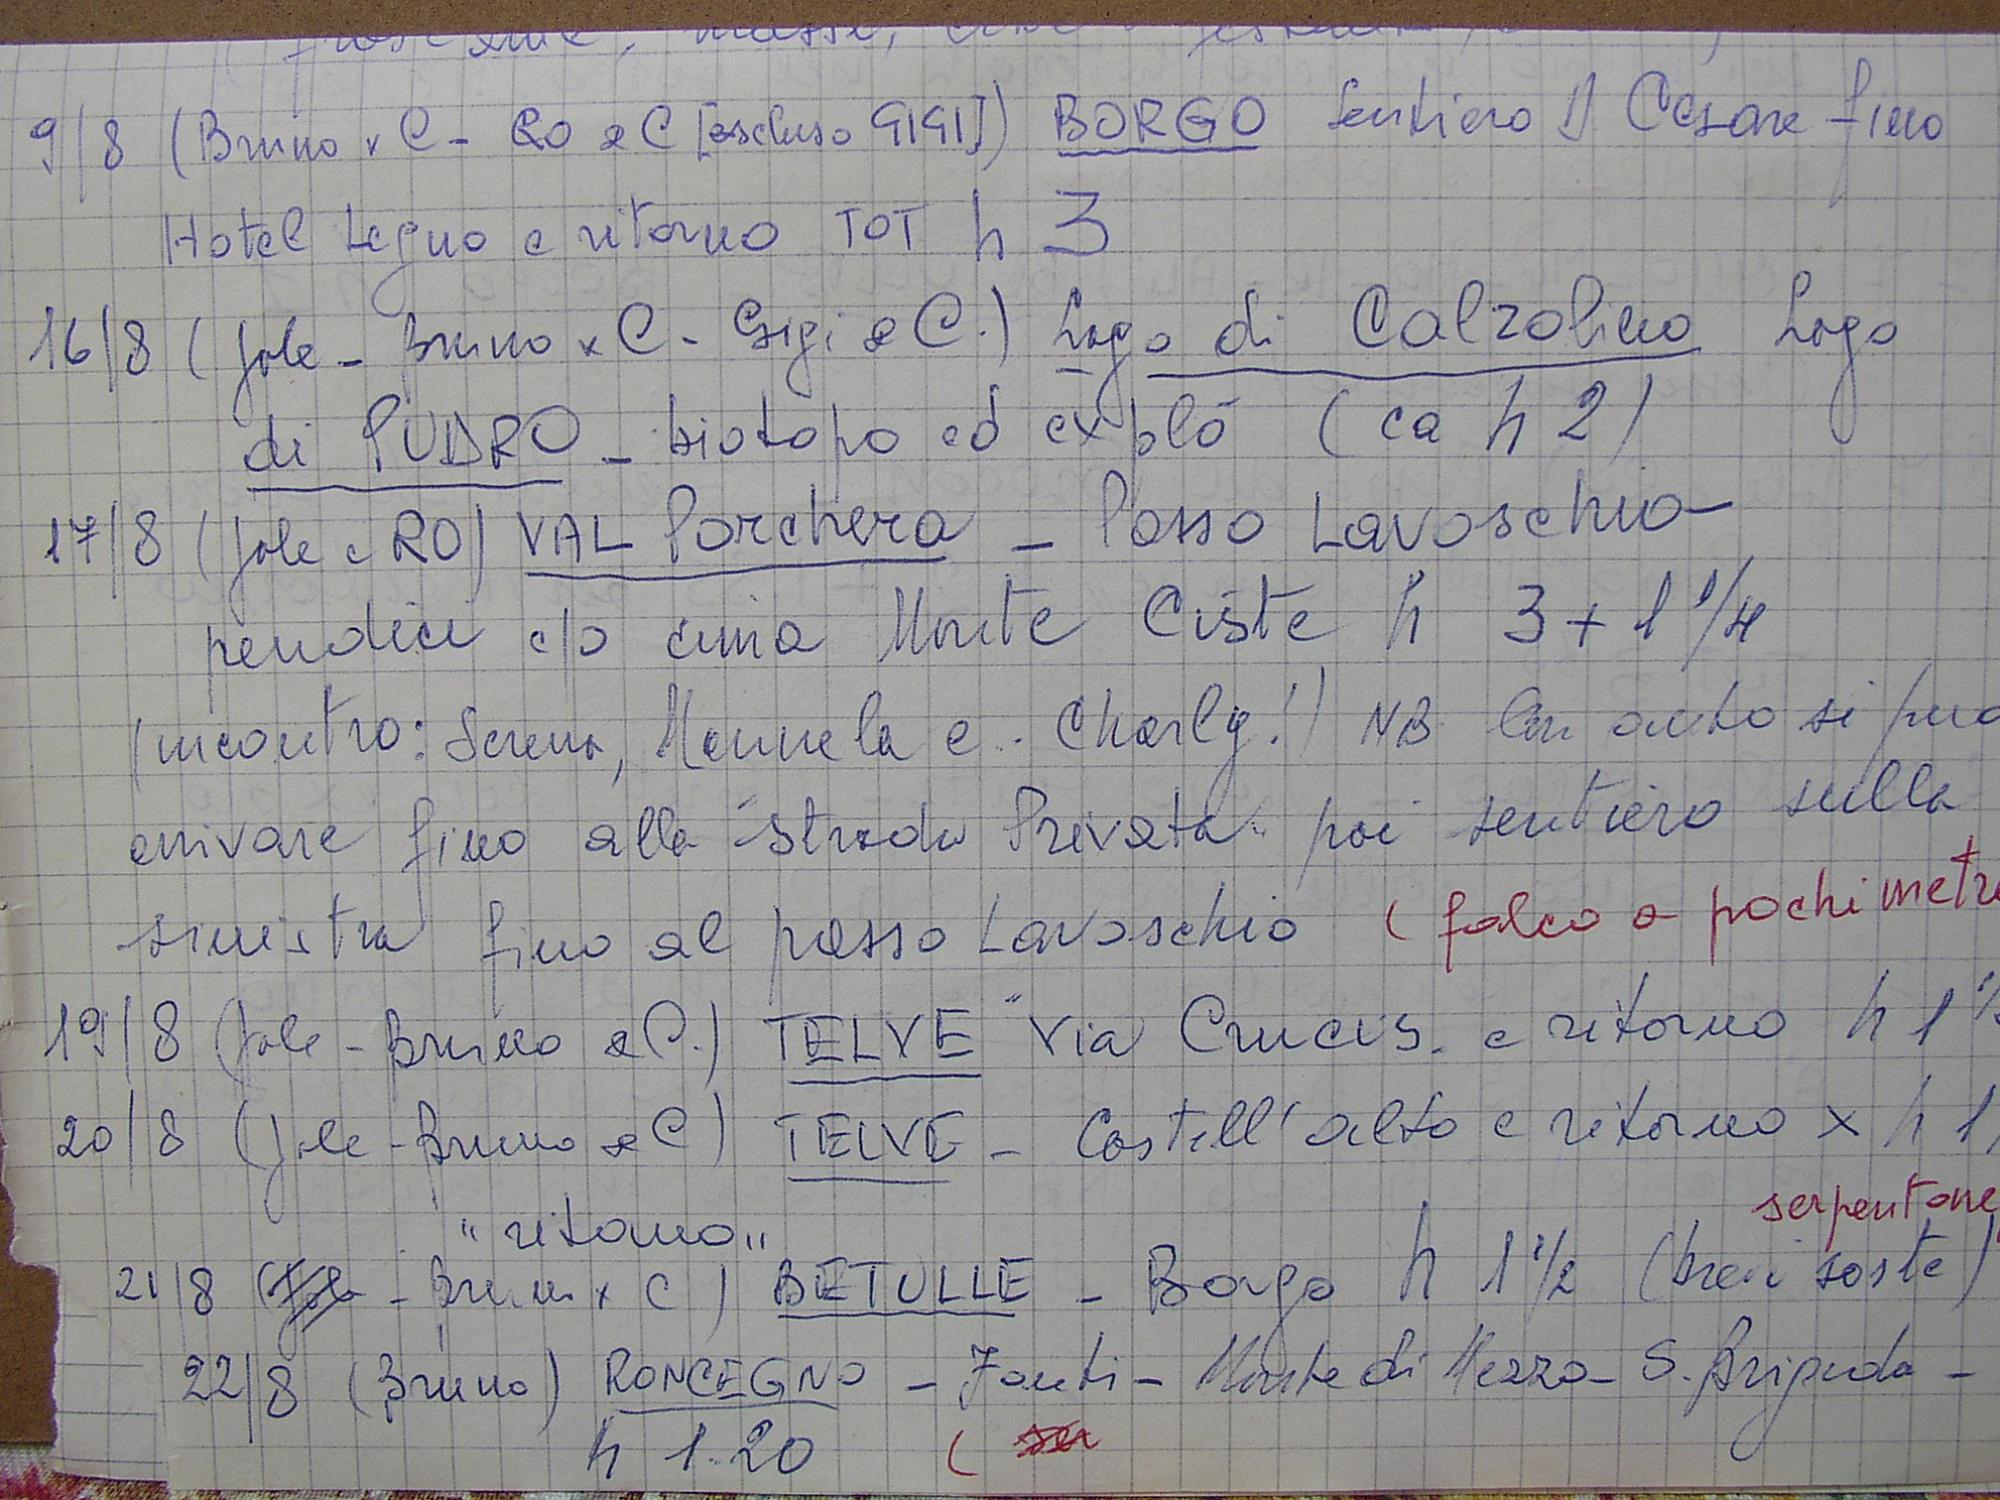 9/8 (Bruno x C - RO e C [escluso GIGI]) BORGO Sentiero D Cesare fino
Hotel Legno e ritorno TOT h 3
16/8 (Jole - Bruno x C - Gigi e C.) Lago di Calzolino Lago
di PUDRO - biotopo ed explò (ca h 2)
17/8 (Jole e RO) VAL Porchera - Passo Lavoschio -
pendici c/o cima Monte Ciste h 3 + 1 1/4
(incontro: Serena, Manuela e.. Charly!) NB Con auto si può
arrivare fino alla "Strada Privata" poi sentiero sulla
sinistra fino al passo Lavoschio (falco a pochi metri
19/8 (Jole - Bruno e C.) TELVE "Via Crucis" e ritorno h 1
20/8 (Jole - Bruno e C) TELVE - Castell'alto e ritorno x h 1
serpentone
"ritorno"
21/8 (Jole - Bruno x C) BETULLE - Borgo h 1 1/2 (brevi soste)
22/8 (Bruno) RONCEGNO - Fonti - Monte di Mezzo - S. Brigida -
h 1.20 (